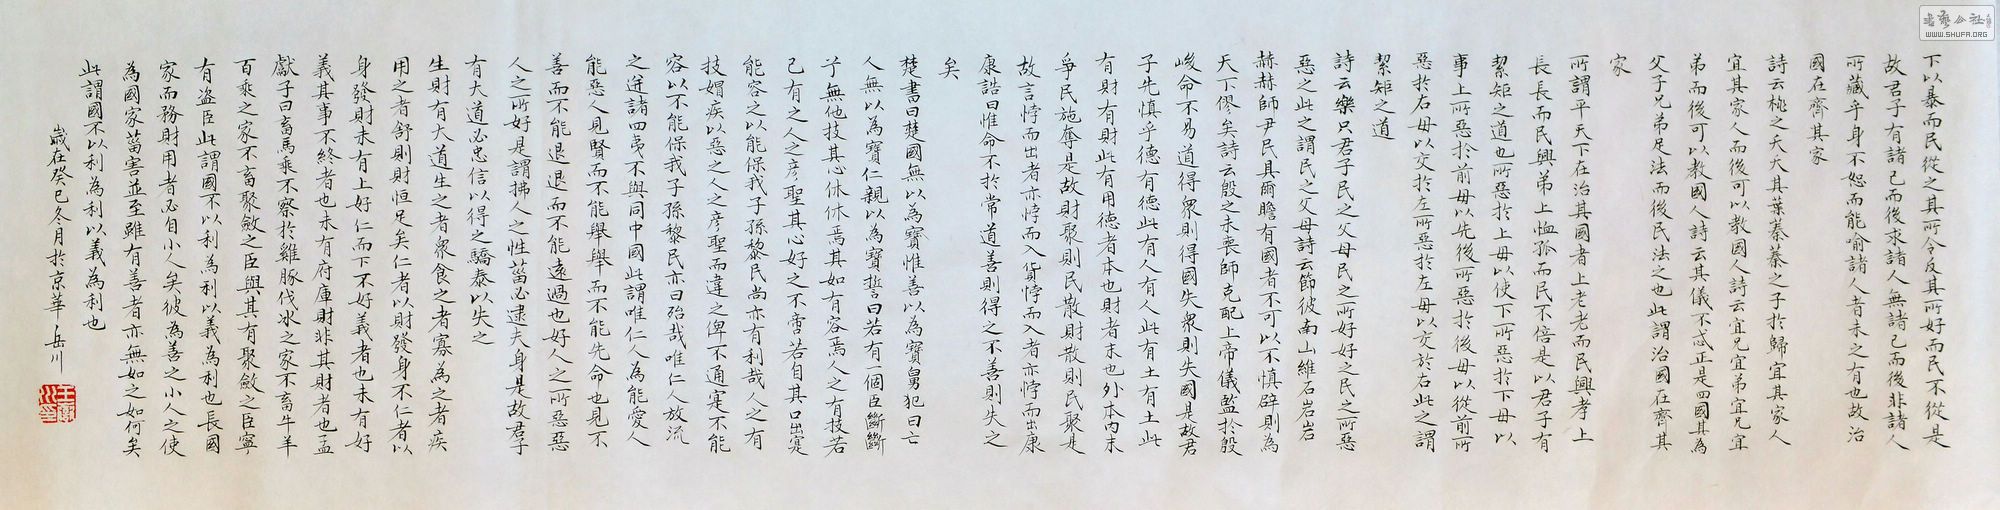 下以暴而民從之其所令反其所好而民不從是
故君子有諸己而後求諸人無諸己而後非諸人
所藏乎身不恕而能喻諸人者未之有也故治
國在齊其家
詩云桃之夭夭其葉蓁蓁之子於歸宜其家人
宜其家人而後可以教國人詩云宜兄宜弟宜兄宜
弟而後可以教國人詩云其儀不忒正是四國其為
父子兄弟足法而後民法之也此謂治國在齊其
家
所謂平天下在治其國者上老老而民興孝上
長長而民興弟上恤孤而民不倍是以君子有
絜矩之道也所惡於上毋以使下所惡於下毋以
事上所惡於前毋以先後所惡於後毋以從前所
惡於右毋以交於左所惡於左毋以交於右此之謂
絜矩之道
詩云樂只君子民之父母民之所好好之民之所惡
惡之此之謂民之父母詩云節彼南山維石岩岩
赫赫師尹民具爾瞻有國者不可以不慎辟則為
天下僇矣詩云殷之未喪師克配上帝儀監於殷
峻命不易道得眾則得國失眾則失國是故君
子先慎乎德有德此有人有人此有土有土此
有財有財此有用德者本也財者末也外本內末
爭民施奪是故財聚則民散財散則民聚是
故言悖而出者亦悖而入貨悖而入者亦悖而出康
康誥曰惟命不於常道善則得之不善則失之
矣
楚書曰楚國無以為寶惟善以為寶舅犯曰亡
人無以為寶仁親以為寶誓曰若有一個臣斷斷
兮無他技其心休休焉其如有容焉人之有技若
己有之人之彥聖其心好之不啻若自其口出寔
能容之以能保我子孫黎民尚亦有利哉人之有
技媢疾以惡之人之彥聖而違之俾不通寔不能
容以不能保我子孫黎民亦曰殆哉唯仁人放流
之迸諸四夷不與同中國此謂唯仁人為能愛人
能惡人見賢而不能舉舉而不能先命也見不
善而不能退退而不能遠過也好人之所惡惡
人之所好是謂拂人之性菑必逮夫身是故君子
有大道必忠信以得之驕泰以失之
生財有大道生之者眾食之者寡為之者疾
用之者舒則財恒足矣仁者以財發身不仁者以
身發財未有上好仁而下不好義者也未有好
義其事不終者也未有府庫財非其財者也孟
獻子曰畜馬乘不察於雞豚伐冰之家不畜牛羊
百乘之家不畜聚斂之臣與其有聚斂之臣寧
有盜臣此謂國不以利為利以義為利也長國
家而務財用者必自小人矣彼為善之小人之使
為國家菑害並至雖有善者亦無如之何矣
此謂國不以利為利以義為利也
歲在癸巳冬月於京華 岳川
WWW.SHUFA.ORG